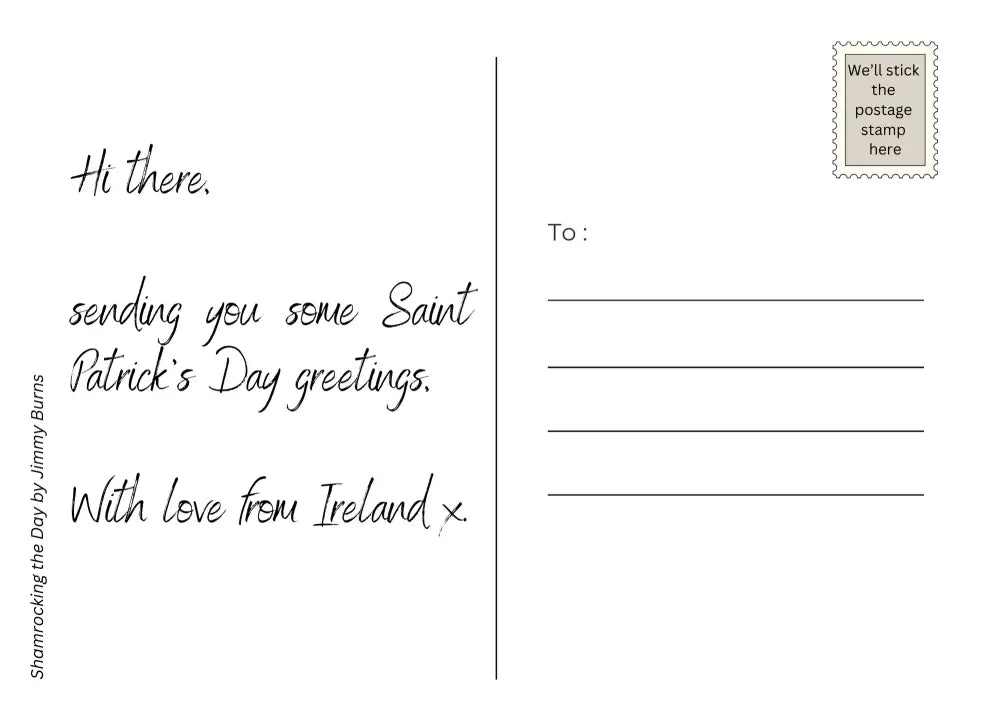 Hi there,
sending you some Saint
Patrick's Day greetings.
With love from Ireland x.
Shamrocking the Day by Jimmy Burns
We'll stick
the
postage
stamp
here
To :